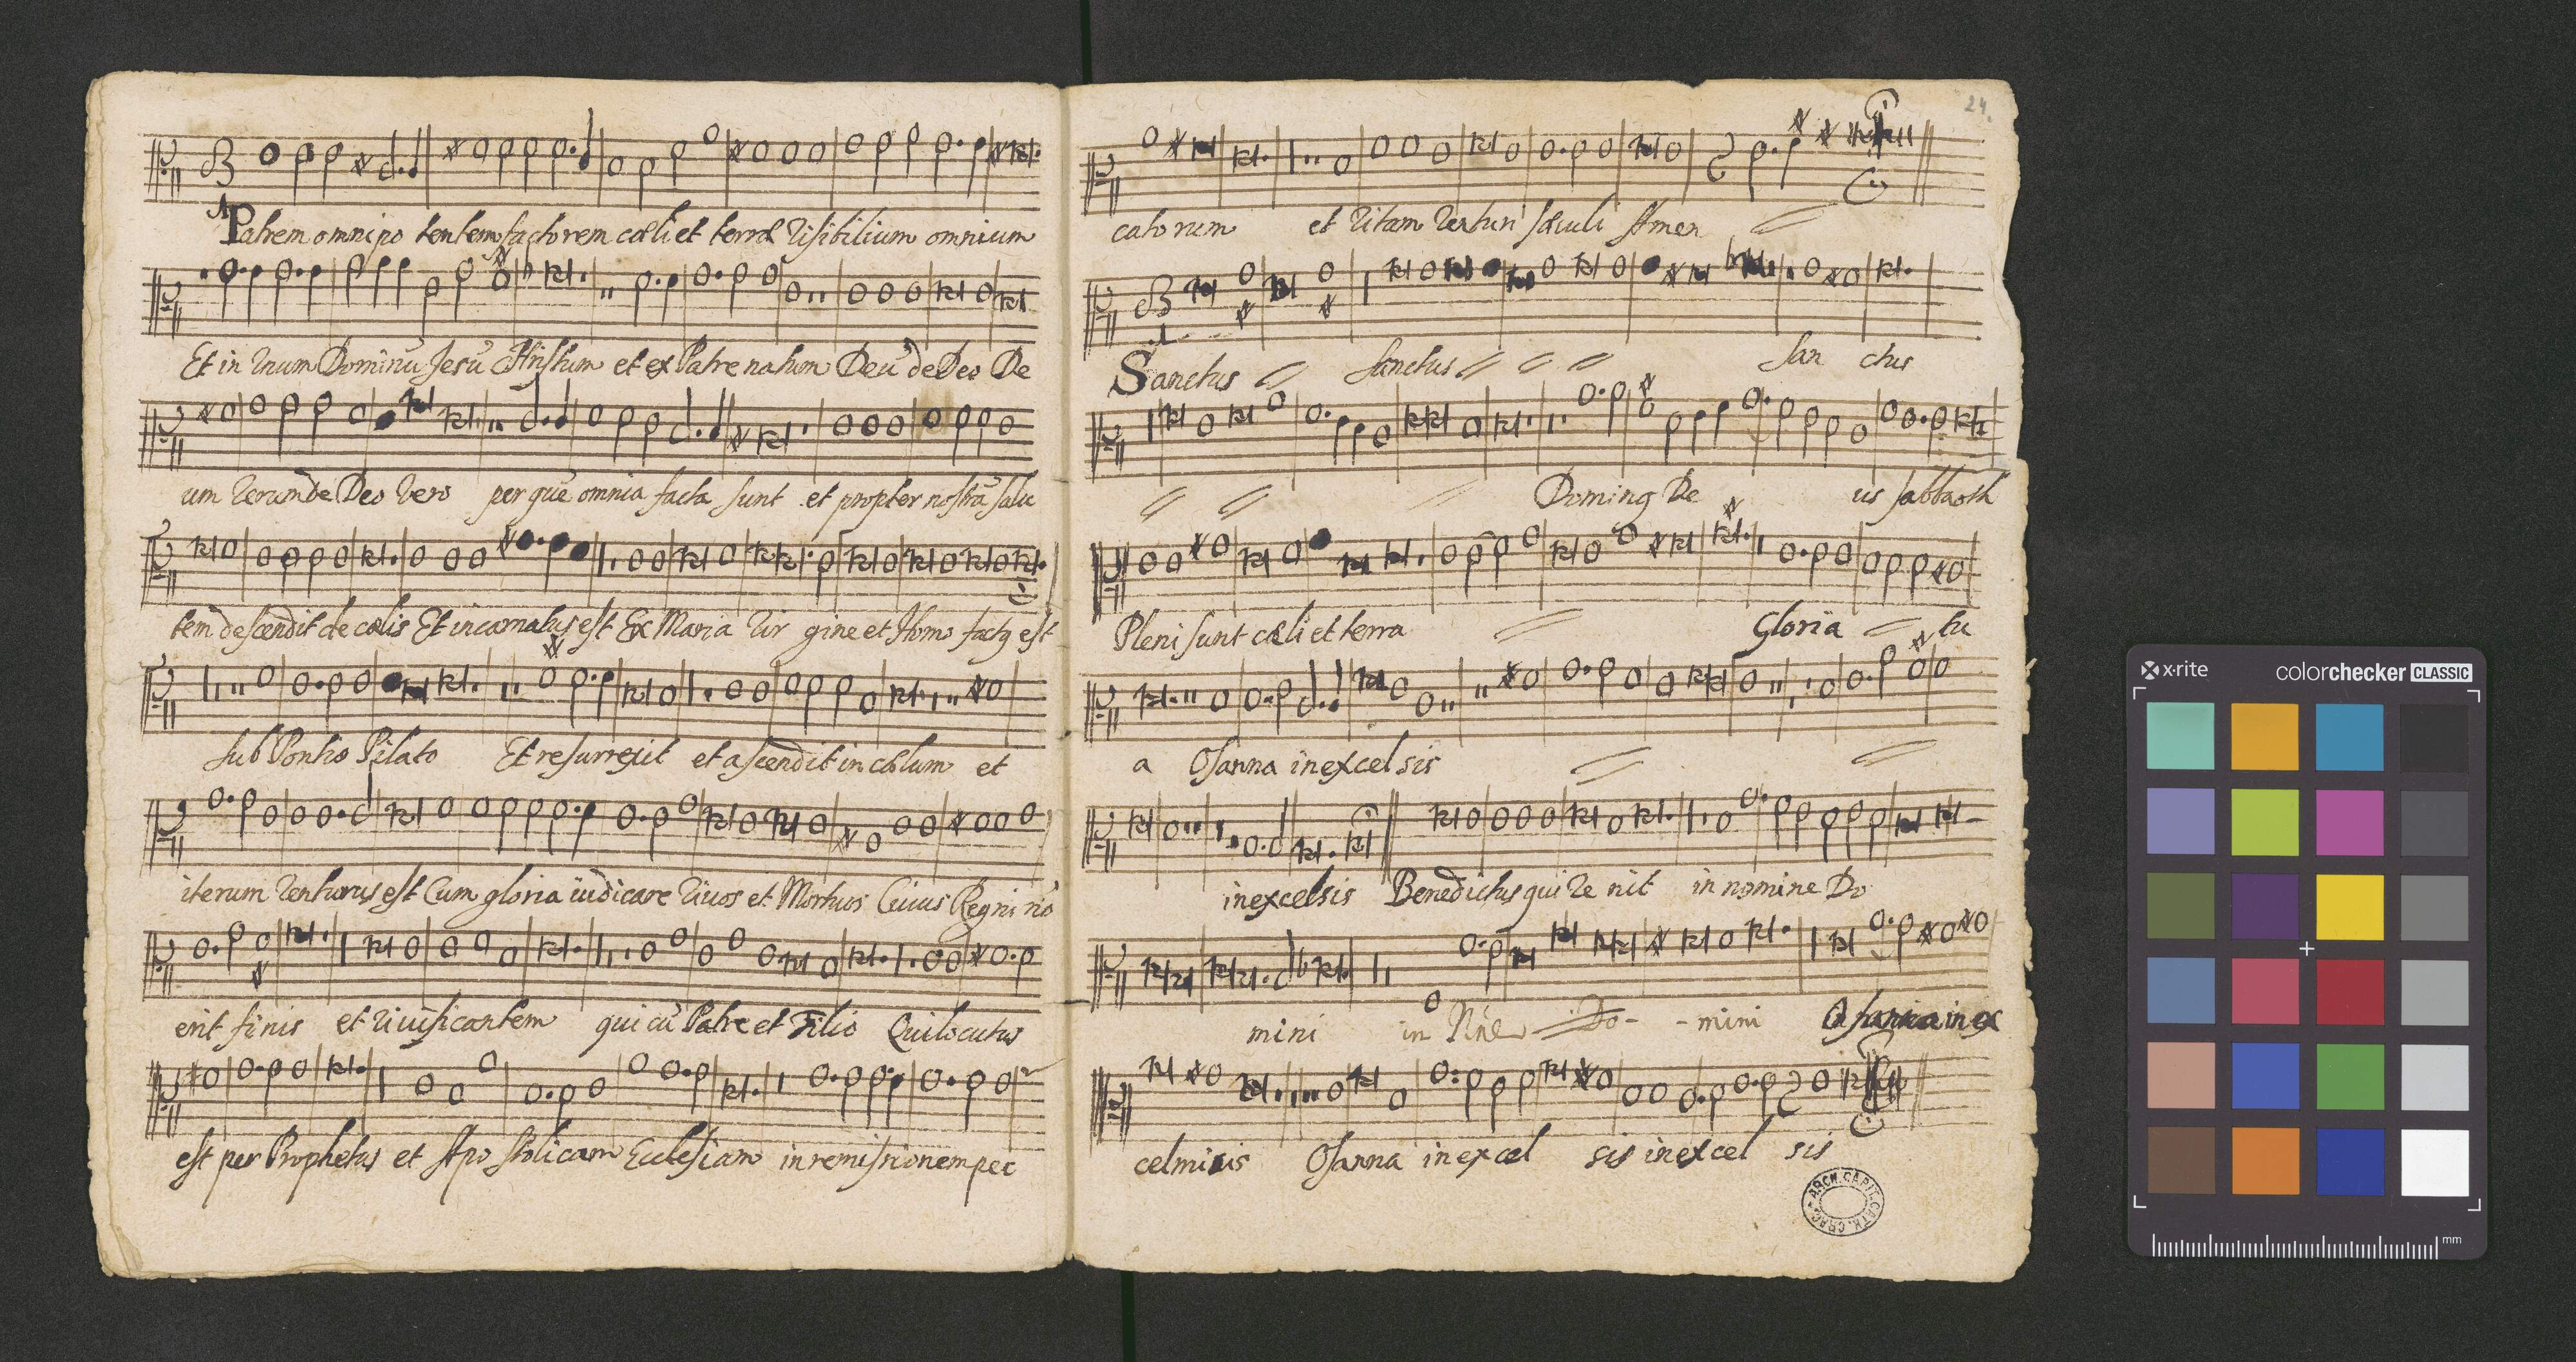 Patrem omnipo tentem factorem cœli et terræ Visibilium omnium
Et in Vnum Dominũ Jesũ Christum et ex Patre natum Deũ de Deo De
um Verum de Deo Vero per quẽ omnia facta sunt et propter nostrã salu
tem descendit de cœlis Et incarnatus est Ex Maria Vir gine et Homo factq est
sub Pontio Pilato Et resurrexit et ascendit in cœlum et
iterum Venturus est Cum gloria iudicare Viuos et Mortuos Cuius Regni nõ
erit finis et Viuificantem qui cũ Patre et Filio Qui locutus
est per Prophetas et Apo stolicam Ecclesiam in remissionem pec
24.
catorum et Vitam Venturi sæculi Amen
Sanctus Sanctus San ctus
Dominq De us sabbaoth
Pleni sunt cœli et terra Gloria tu
a Osanna in excel sis
in excelsis Benedictus qui Ve nit in nomine Do
mini in Nńe Do- - mini Osanna in ex
celmisis Osanna in excel sis in excel sis
ARCH. CAPIT. CATH. CRAC.
x·rite
colorchecker CLASSIC
mm